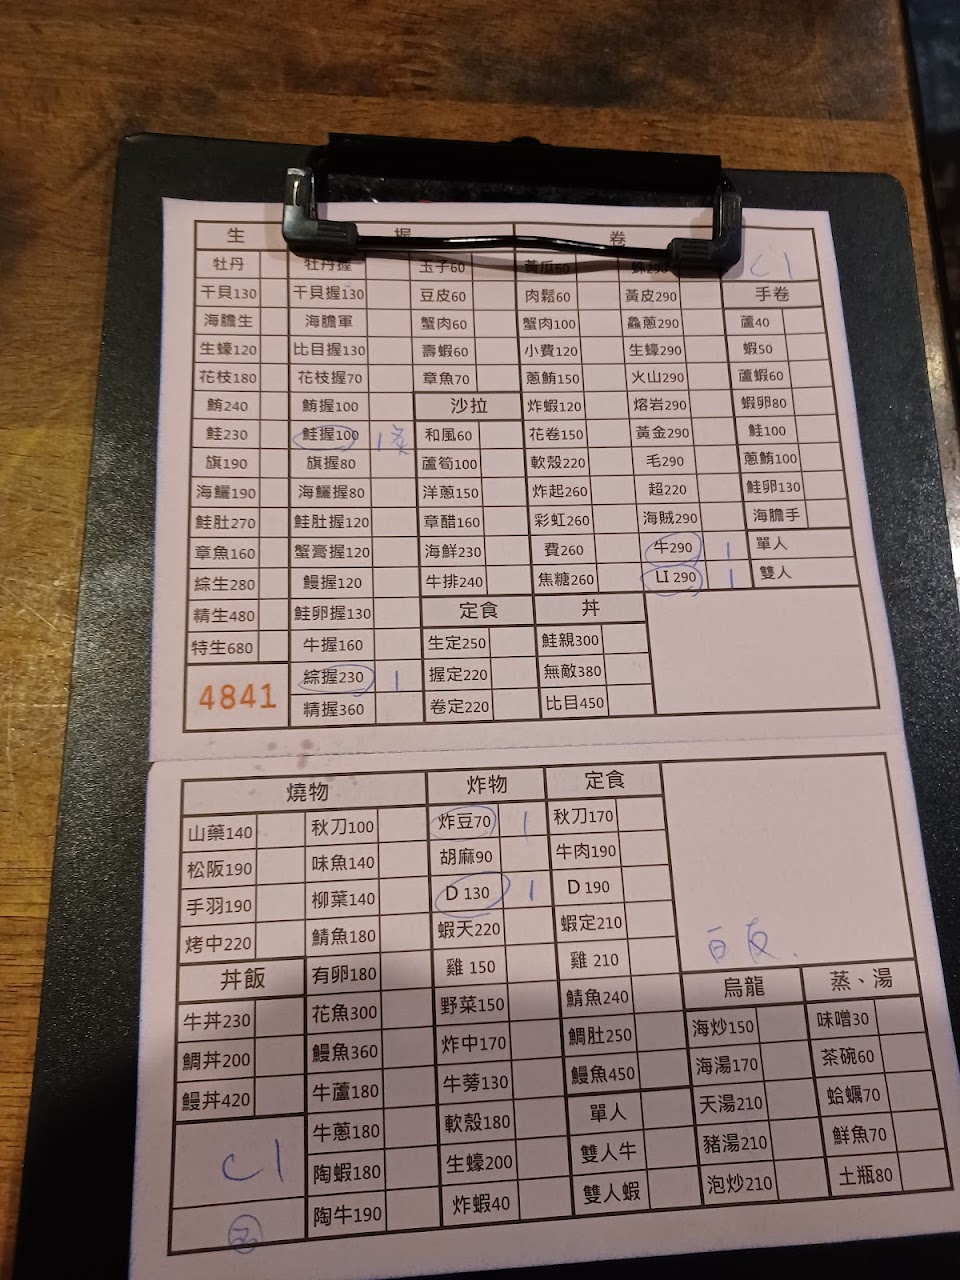 生 握 卷
牡丹 牡丹握 玉子60 黃瓜60 C1
干貝130 干貝握130 豆皮60 肉鬆60 黃皮290 手卷
海膽生 海膽軍 蟹肉60 蟹肉100 鱻蔥290 蘆40
生蠔120 比目握130 壽蝦60 小費120 生蠔290 蝦50
花枝180 花枝握70 章魚70 蔥鮪150 火山290 蘆蝦60
鮪240 鮪握100 沙拉 炸蝦120 熔岩290 蝦卵80
鮭230 鮭握100 1 和風60 花卷150 黃金290 鮭100
旗190 旗握80 蘆筍100 軟殼220 毛290 蔥鮪100
海鱺190 海鱺握80 洋蔥150 炸起260 超220 鮭卵130
鮭肚270 鮭肚握120 章醋160 彩虹260 海賊290 海膽手
章魚160 蟹膏握120 海鮮230 費260 牛290 1 單人
綜生280 鰻握120 牛排240 焦糖260 LI 290 1 雙人
精生480 鮭卵握130 定食 丼
特生680 牛握160 生定250 鮭親300
4841 綜握230 1 握定220 無敵380
精握360 卷定220 比目450
燒物 炸物 定食
山藥140 秋刀100 炸豆70 1 秋刀170
松阪190 味魚140 胡麻90 牛肉190
手羽190 柳葉140 D 130 1 D 190
烤中220 鯖魚180 蝦天220 蝦定210
丼飯 有卵180 雞 150 雞 210 烏龍 蒸、湯
牛丼230 花魚300 野菜150 鯖魚240 海炒150 味噌30
鯛丼200 鰻魚360 炸中170 鯛肚250 海湯170 茶碗60
鰻丼420 牛蘆180 牛蒡130 鰻魚450 天湯210 蛤蠣70
牛蔥180 軟殼180 單人 豬湯210 鮮魚70
C1 陶蝦180 生蠔200 雙人牛 泡炒210 土瓶80
陶牛190 炸蝦40 雙人蝦